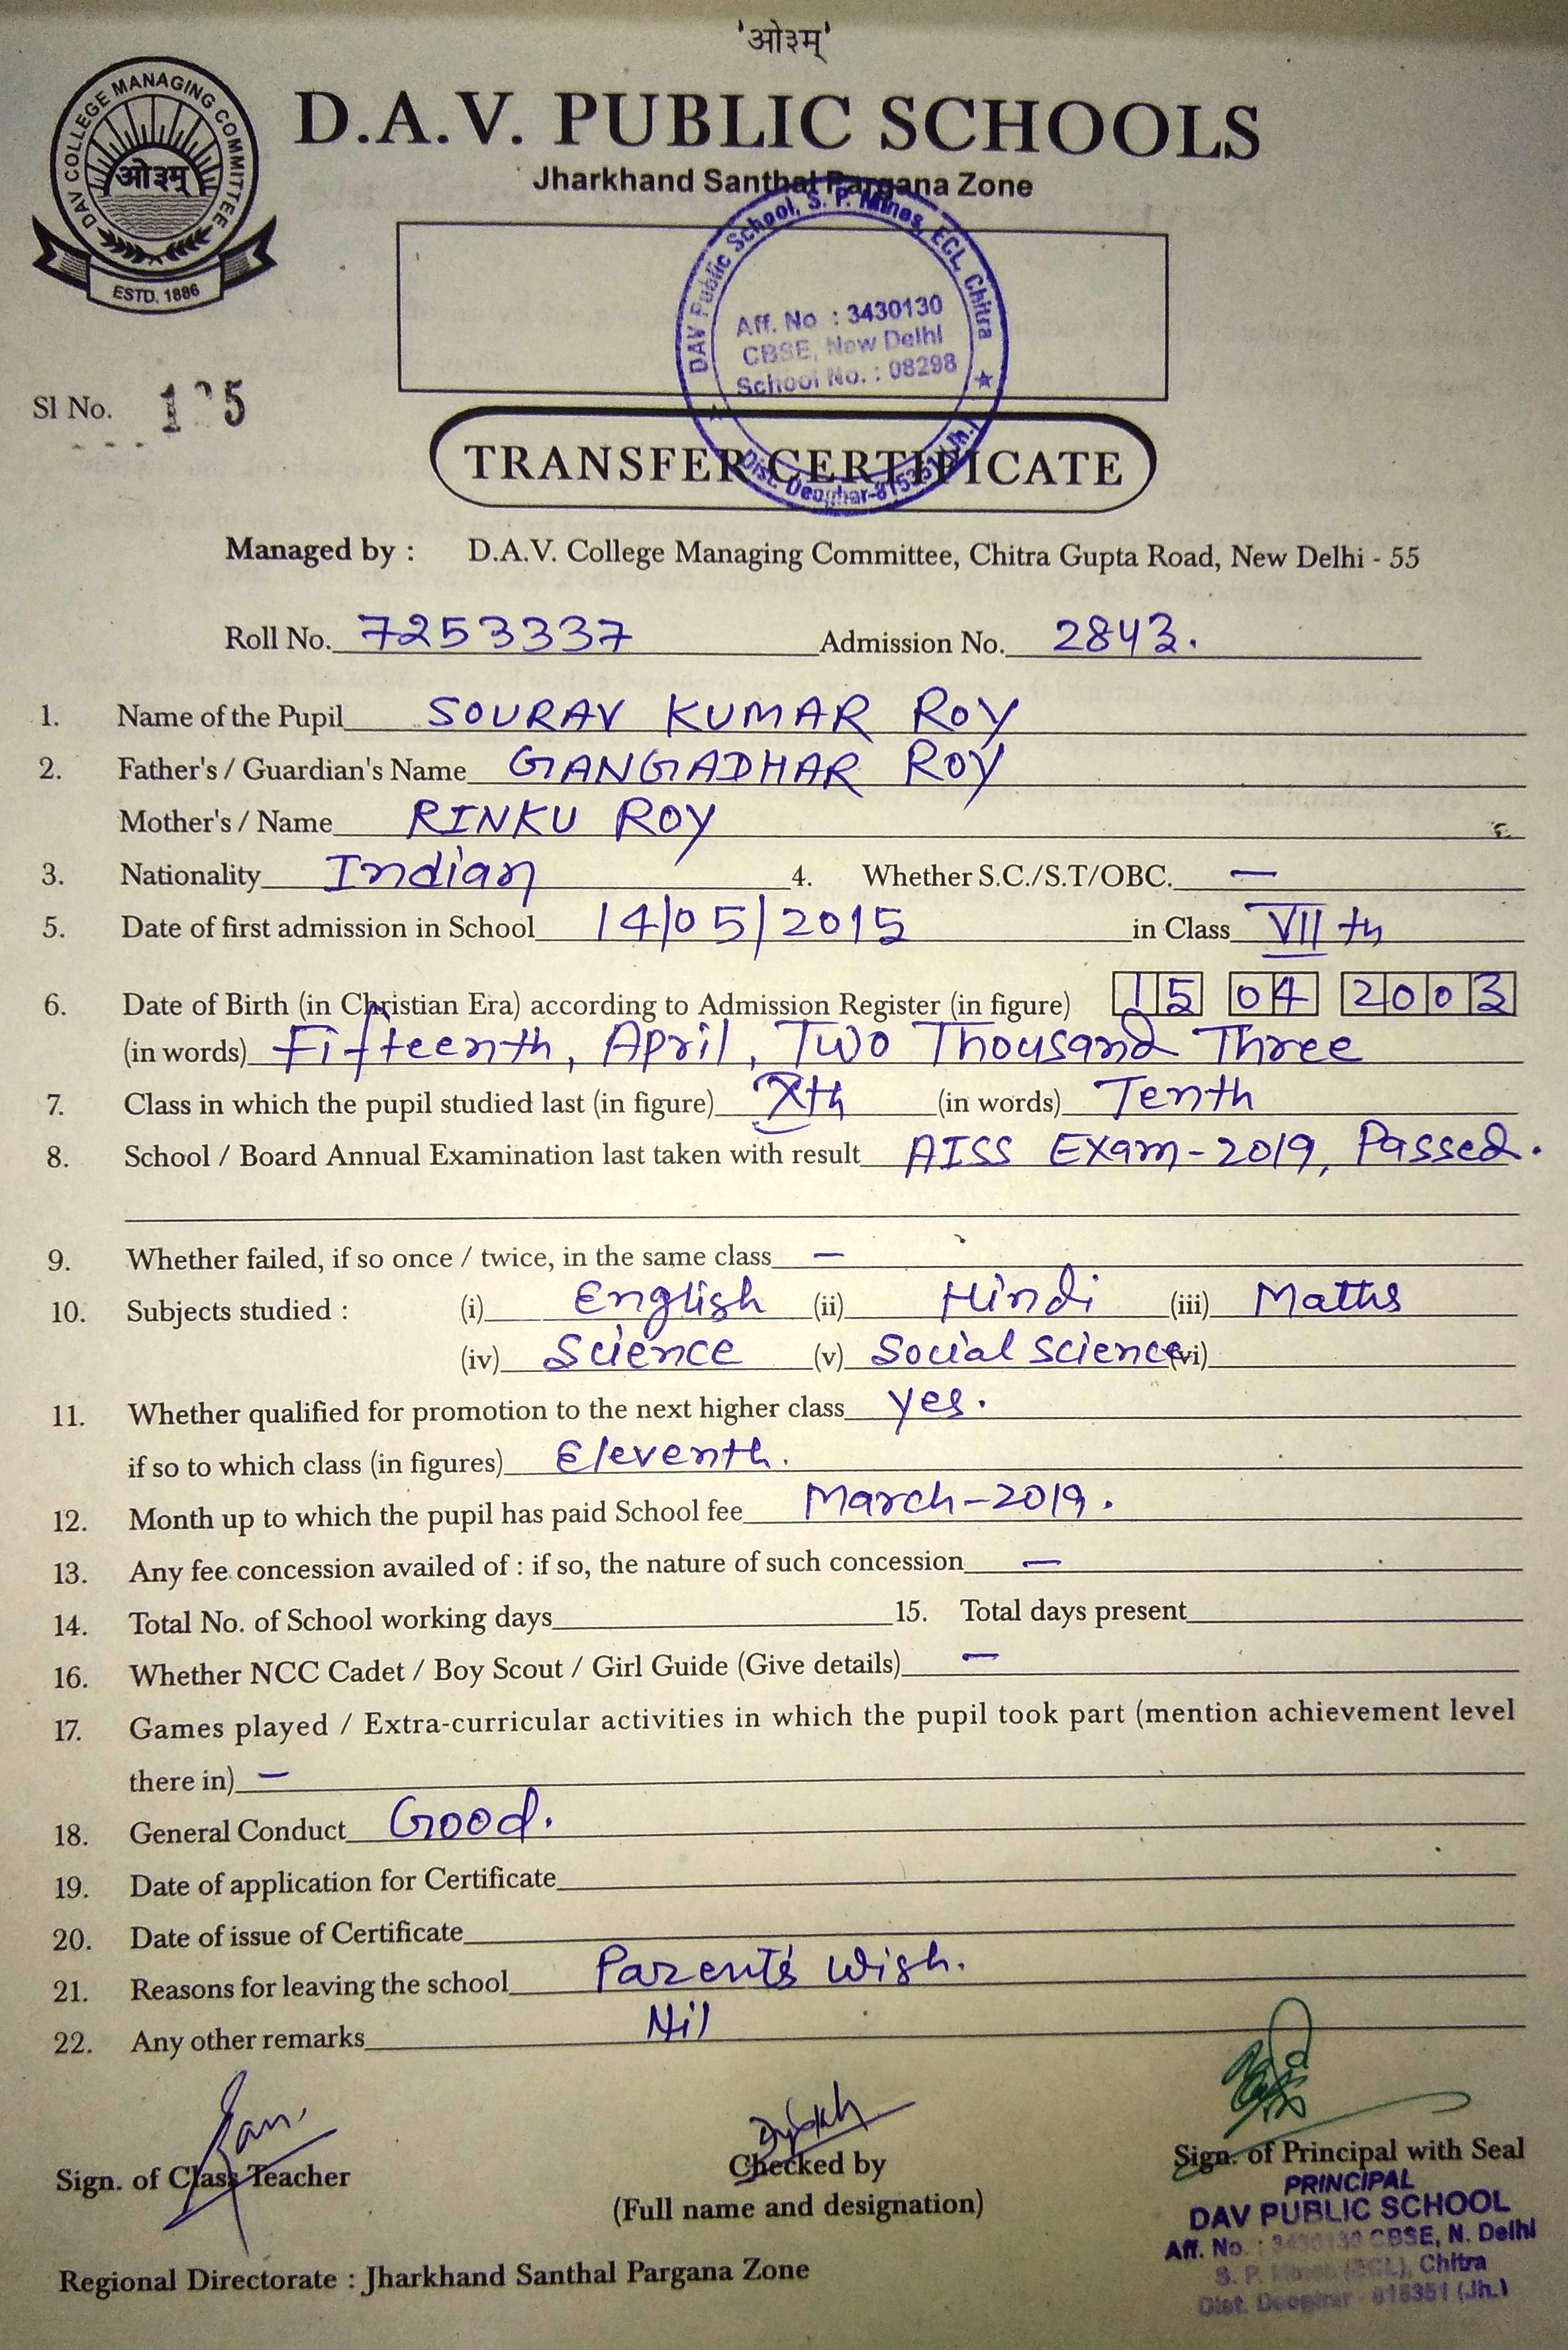 'ओ३म्'
DAV COLLEGE MANAGING COMMITTEE
ओ३म्
ESTD. 1886
D.A.V. PUBLIC SCHOOLS
Jharkhand Santhal Pargana Zone
DAV Public School, S. P. Mines, ECL, Chitra
Aff. No : 3430130
CBSE, New Delhi
School No. : 08298
Dist. Deoghar-815351 (Jh.)
Sl No.
TRANSFER CERTIFICATE
Managed by : D.A.V. College Managing Committee, Chitra Gupta Road, New Delhi - 55
Roll No. 7253337 Admission No. 2843.
1. Name of the Pupil SOURAV KUMAR ROY
2. Father's / Guardian's Name GANGADHAR ROY
Mother's / Name RINKU ROY
3. Nationality Indian 4. Whether S.C./S.T/OBC. —
5. Date of first admission in School 14/05/2015 in Class VII th
6. Date of Birth (in Christian Era) according to Admission Register (in figure) 15 04 2003
(in words) Fifteenth, April, Two Thousand Three
7. Class in which the pupil studied last (in figure) Xth (in words) Tenth
8. School / Board Annual Examination last taken with result AISS Exam-2019, Passed.
9. Whether failed, if so once / twice, in the same class —
10. Subjects studied : (i) English (ii) Hindi (iii) Maths
(iv) Science (v) Social Science (vi)
11. Whether qualified for promotion to the next higher class yes.
if so to which class (in figures) Eleventh.
12. Month up to which the pupil has paid School fee March-2019.
13. Any fee concession availed of : if so, the nature of such concession —
14. Total No. of School working days 15. Total days present
16. Whether NCC Cadet / Boy Scout / Girl Guide (Give details) —
17. Games played / Extra-curricular activities in which the pupil took part (mention achievement level
there in) —
18. General Conduct Good.
19. Date of application for Certificate
20. Date of issue of Certificate
21. Reasons for leaving the school Parent's wish.
22. Any other remarks Nil
Sign. of Class Teacher
Checked by
(Full name and designation)
Sign. of Principal with Seal
PRINCIPAL
DAV PUBLIC SCHOOL
Aff. No. : 3430130 CBSE, N. Delhi
S. P. Mines (ECL), Chitra
Dist. Deoghar - 815351 (Jh.)
Regional Directorate : Jharkhand Santhal Pargana Zone